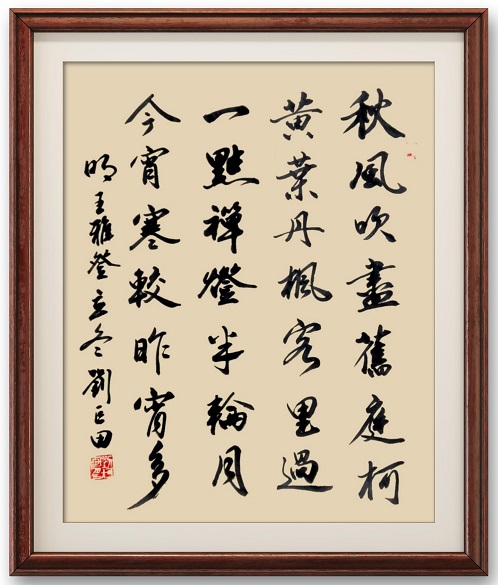 秋風吹盡舊庭柯
黃葉丹楓客里過
一點禪燈半輪月
今宵寒較昨宵多
明王稚登立冬劉巨田